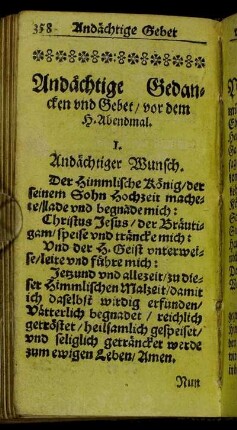 358 Andächtige Gebet
Andächtige Gedan-
cken vnd Gebet/ vor dem
H. Abendmal.
1.
Andächtiger Wunsch.
Der Himmlische König/ der
seinem Sohn Hochzeit mache-
te/ lade vnd begnade mich:
Christus Jesus/ der Bräuti-
gam/ speise vnd träncke mich:
Vnd der H. Geist vnterwei-
se/ leite vnd führe mich:
Jetzund vnd allezeit/ zu die-
ser Himmlischen Malzeit/ damit
ich daselbst wirdig erfunden/
Vätterlich begnadet/ reichlich
getröstet/ heilsamlich gespeiset/
vnd seliglich geträncket werde
zum ewigen Leben/ Amen.
Nun